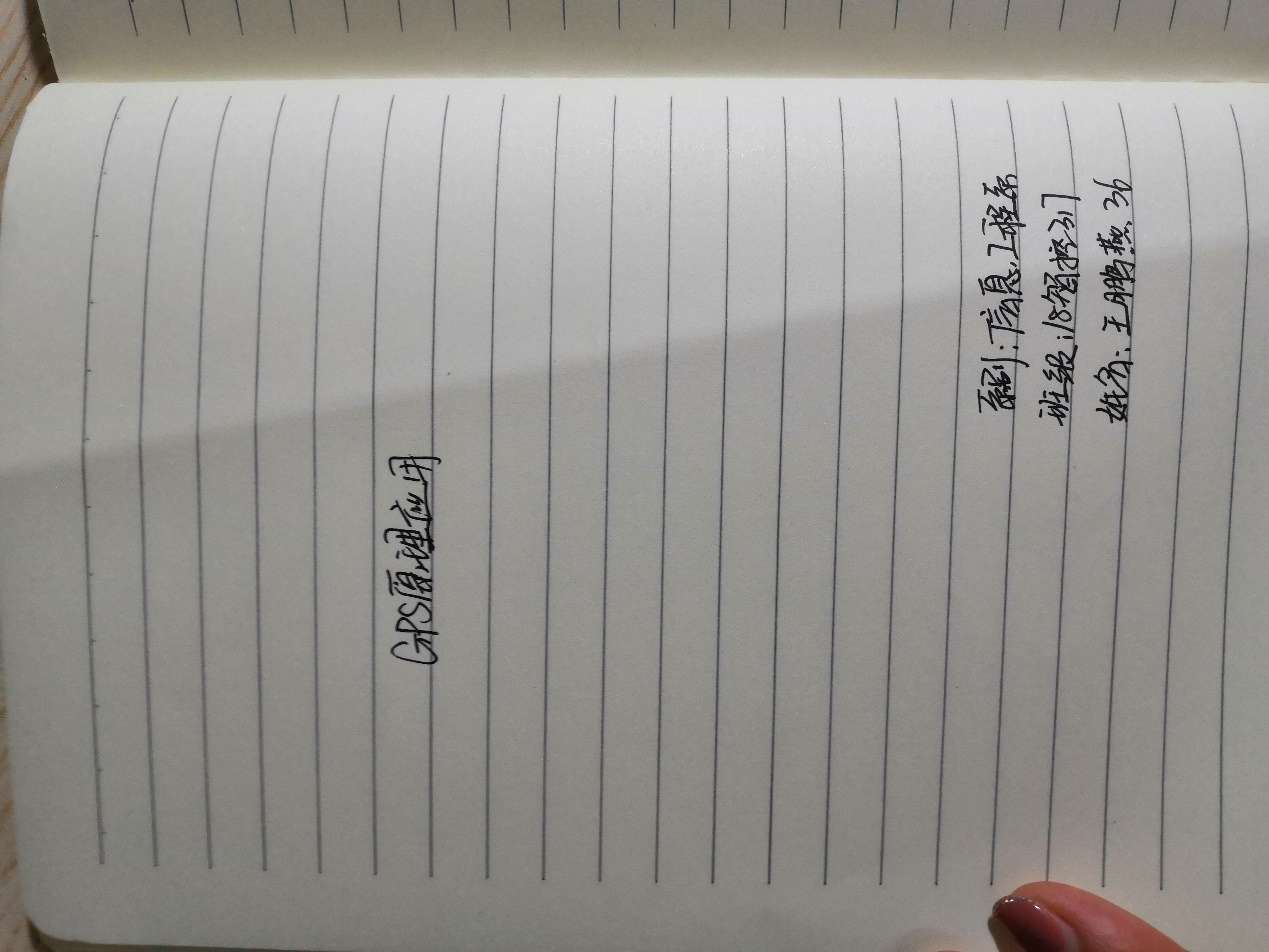 GPS原理应用
系别:信息工程系
班级:18智控317
姓名:王鹏燕 36